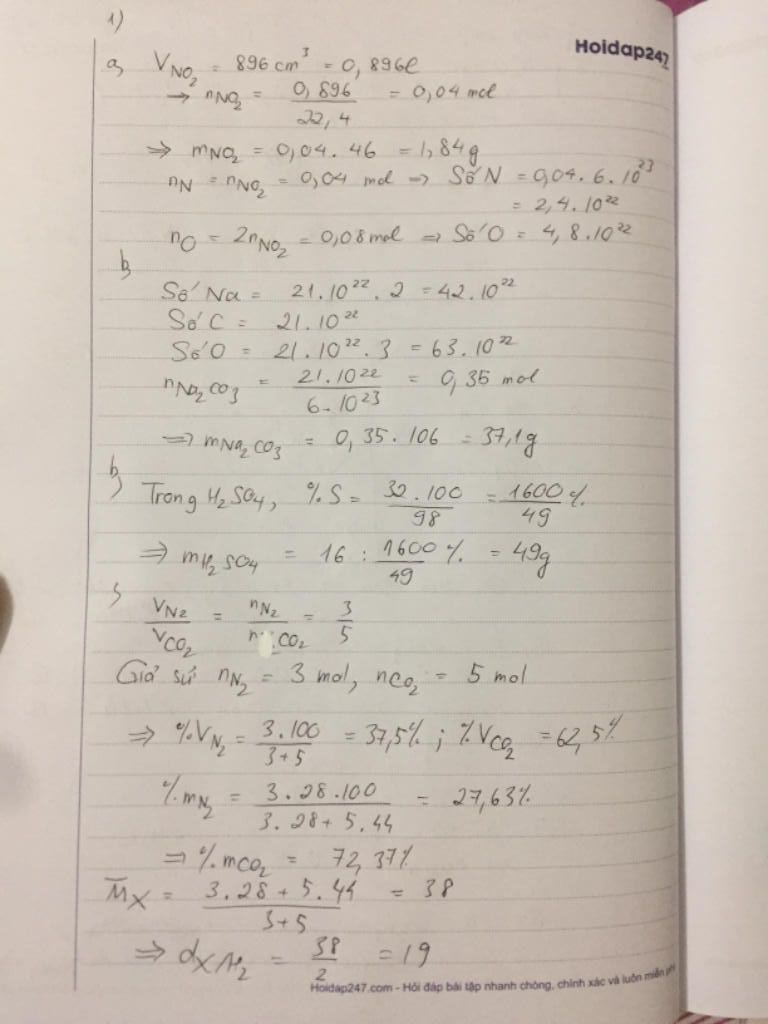 1)
Hoidap247
a, V_NO₂ = 896 cm³ = 0,896l
→ n_NO₂ = 0,896/22,4 = 0,04 mol
⇒ m_NO₂ = 0,04 . 46 = 1,84g
n_N = n_NO₂ = 0,04 mol ⇒ Số N = 0,04 . 6 . 10²³
= 2,4 . 10²²
n_O = 2n_NO₂ = 0,08 mol ⇒ Số O = 4,8 . 10²²
b,
Số Na = 21 . 10²² . 2 = 42 . 10²²
Số C = 21 . 10²²
Số O = 21 . 10²² . 3 = 63 . 10²²
n_Na₂CO₃ = 21 . 10²²/6 . 10²³ = 0,35 mol
⇒ m_Na₂CO₃ = 0,35 . 106 = 37,1g
b,
Trong H₂SO₄, %S = 32 . 100/98 = 1600/49 %
⇒ m_H₂SO₄ = 16 : 1600/49 % = 49g
V_N₂/V_CO₂ = n_N₂/n_CO₂ = 3/5
Giả sử n_N₂ = 3 mol, n_CO₂ = 5 mol
⇒ %V_N₂ = 3 . 100/3+5 = 37,5% ; %V_CO₂ = 62,5%
%m_N₂ = 3 . 28 . 100/3 . 28 + 5 . 44 = 27,63%
⇒ %m_CO₂ = 72,37%
M̄_X = 3 . 28 + 5 . 44/3+5 = 38
⇒ d_X/H₂ = 38/2 = 19
Hoidap247.com - Hỏi đáp bài tập nhanh chóng, chính xác và luôn miễn phí